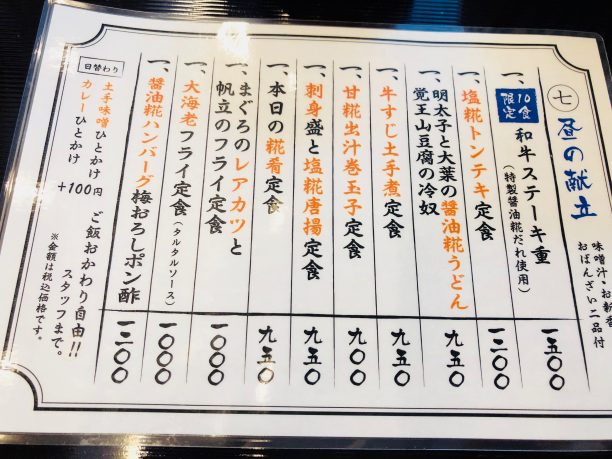 七 昼の献立
味噌汁・お新香
おばんざい二品付
一、10食限定 和牛ステーキ重
(特製醤油糀だれ使用)
一五〇〇
一、塩糀トンテキ定食
一二〇〇
一、明太子と大葉の醤油糀うどん
覚王山豆腐の冷奴
九五〇
一、牛すじ土手煮定食
九五〇
一、甘糀出汁巻玉子定食
九〇〇
一、刺身盛と塩糀唐揚定食
九五〇
一、本日の糀肴定食
九五〇
一、まぐろのレアカツと
帆立のフライ定食
一〇〇〇
一、大海老フライ定食(タルタルソース)
一〇〇〇
一、醤油糀ハンバーグ梅おろしポン酢
一二〇〇
日替わり
土手味噌ひとかけ
カレーひとかけ
+100円
ご飯おかわり自由!!
スタッフまで。
※金額は税込価格です。